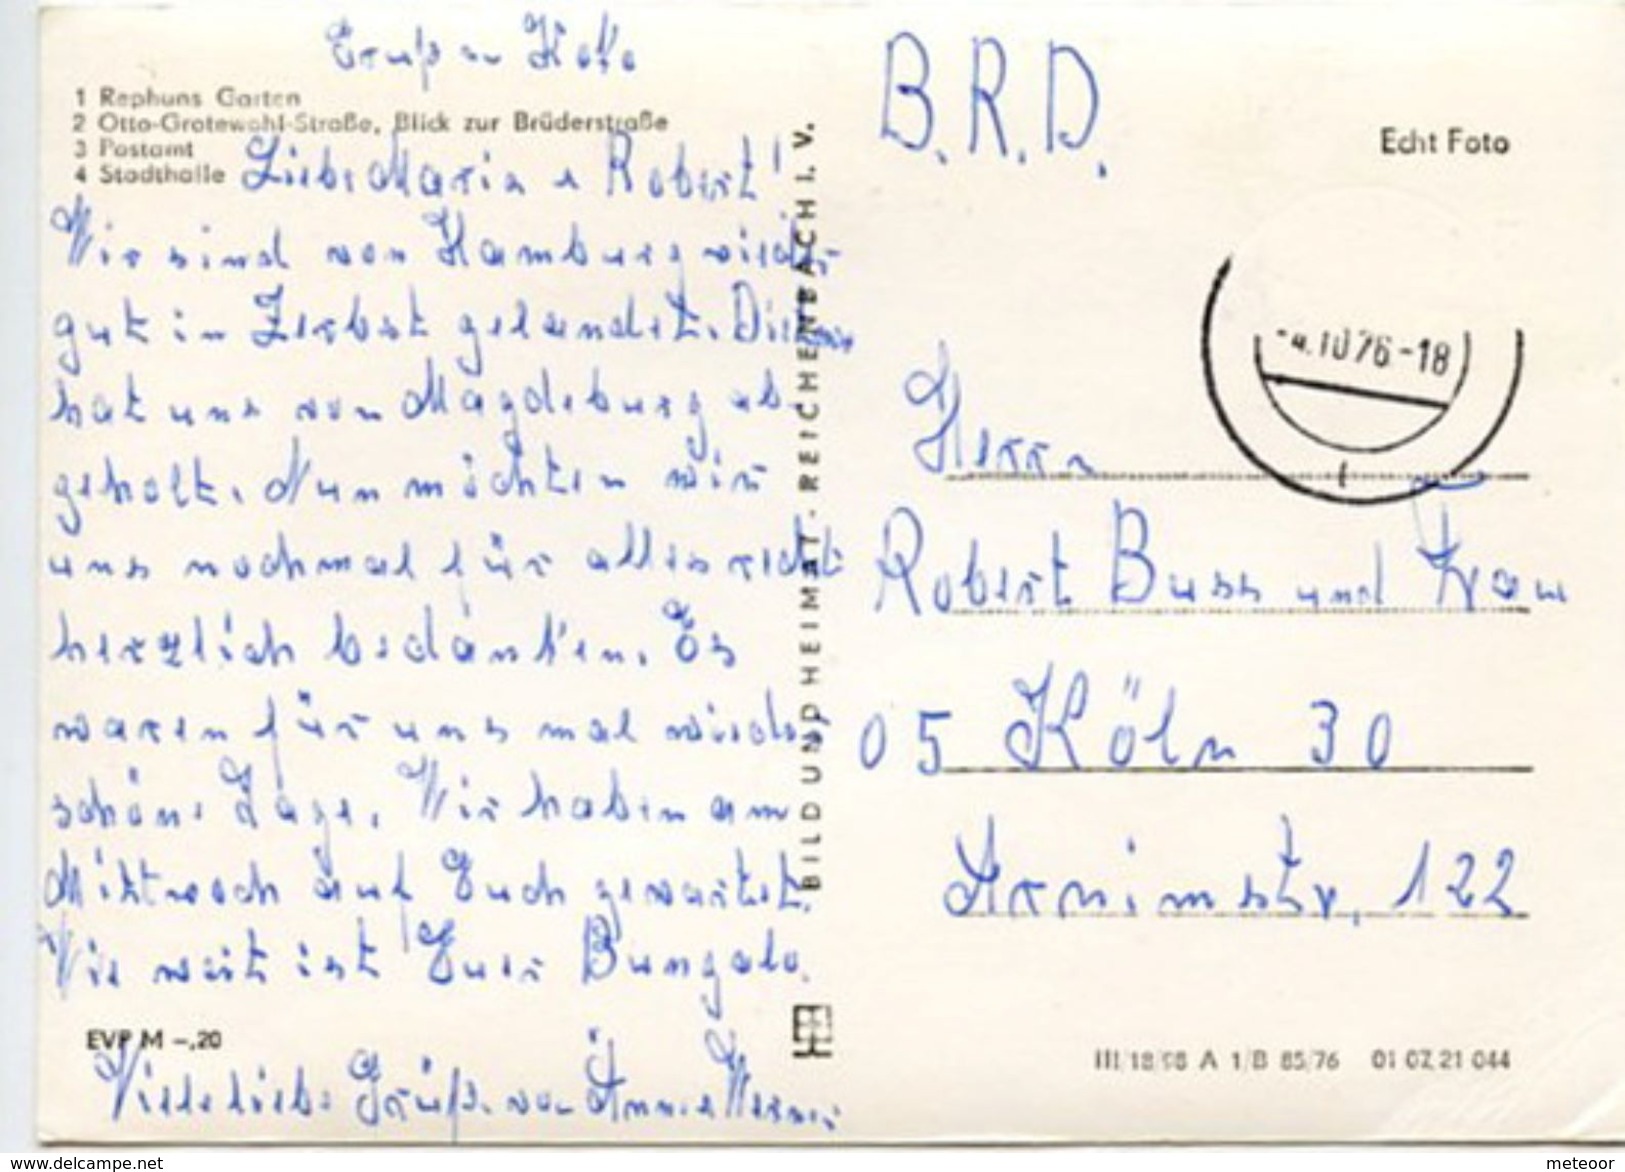 Gruß an
1 Rephuns Garten
2 Otto-Grotewohl-Straße, Blick zur Brüderstraße
3 Postamt
4 Stadthalle
Liebe Maria u Robert!
Wir sind von Hamburg wieder
gut in Zerbst gelandet.
hat uns von Magdeburg ab
geholt. Nun möchten wir
uns nochmal für alles recht
herzlich bedanken. Es
waren für uns mal wieder
schöne Tage. Wir haben am
Mittwoch auf Euch gewartet.
Wie weit ist Euer Bungalo.
EVP M -,20
Viele liebe Grüße von Anni u Werner
BILD UND HEIMAT · REICHENBACH I. V.
B.R.D.
Echt Foto
-4.10.76-18
Herrn
Robert Buss und Frau
05 Köln 30
Arnimstr. 122
III/18/98 A 1/B 85/76 01 02 21 044
www.delcampe.net
meteoor